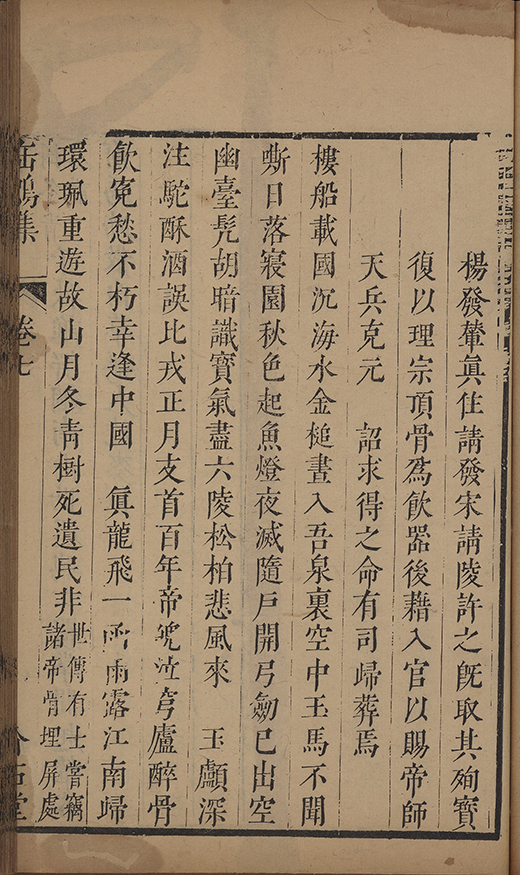 楊發輦眞住請發宋請陵許之旣取其殉寶
復以理宗頂骨爲飮器後藉入官以賜帝師
天兵克元　詔求得之命有司歸葬焉
樓船載國沉海水金槌晝入吾泉裏空中玉馬不聞
嘶日落寢園秋色起魚燈夜滅隨戶開弓劒已出空
幽臺髠胡暗識寶氣盡六陵松柏悲風來　玉顱深
注駝酥酒誤比戎正月支首百年帝魄泣穹廬醉骨
飮寃愁不朽幸逢中國　眞龍飛一函雨露江南歸
環珮重遊故山月冬靑樹死遺民非世傳有士嘗竊
諸帝骨埋屏處
缶鳴集
卷七